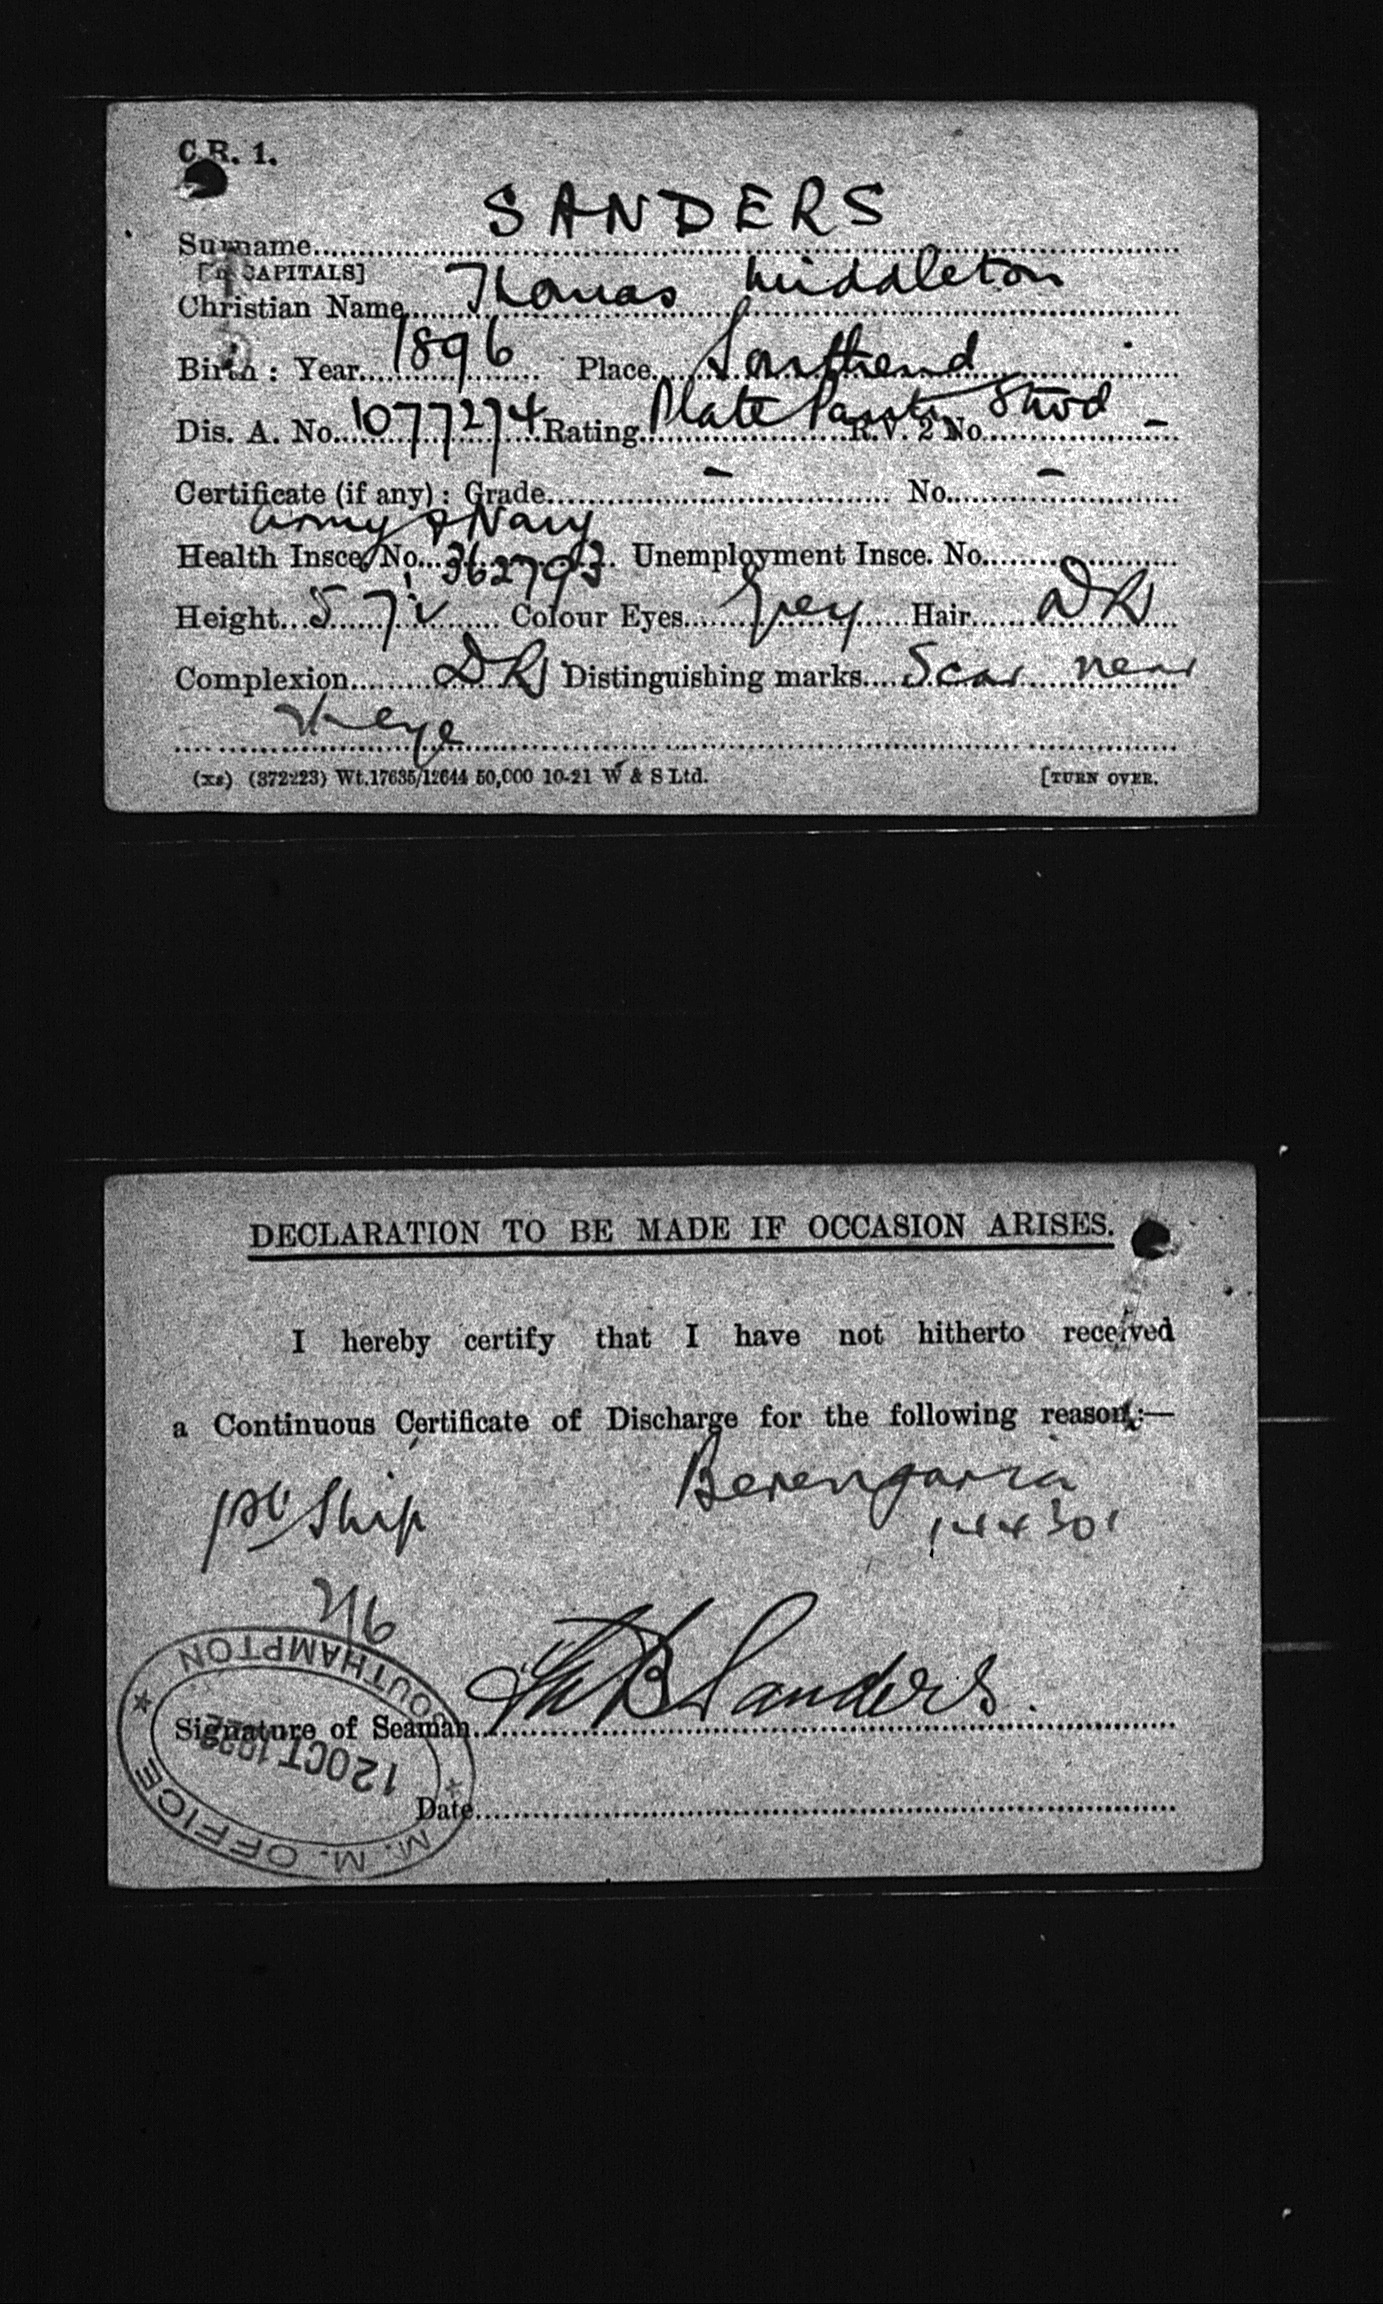 C.R. 1.
SANDERS
Surname
[In CAPITALS]
Christian Name Thomas Middleton
Birth : Year 1896 Place Southend
Dis. A. No. 1077274 Rating Plate Pantry Stwd R.V. 2 No. -
Certificate (if any) : Grade - No. -
Army & Navy
Health Insce. No. 362793 Unemployment Insce. No.
Height 5 7½ Colour Eyes Grey Hair DK
Complexion DK Distinguishing marks Scar near
eye
(xs) (372223) Wt.17635/12644 50,000 10-21 W & S Ltd. [TURN OVER.
DECLARATION TO BE MADE IF OCCASION ARISES.
I hereby certify that I have not hitherto received
a Continuous Certificate of Discharge for the following reason:—
1st Ship Berengaria
144301
2/6
Sanders
Signature of Seaman
Date
M. M. OFFICE SOUTHAMPTON
12 OCT 1922